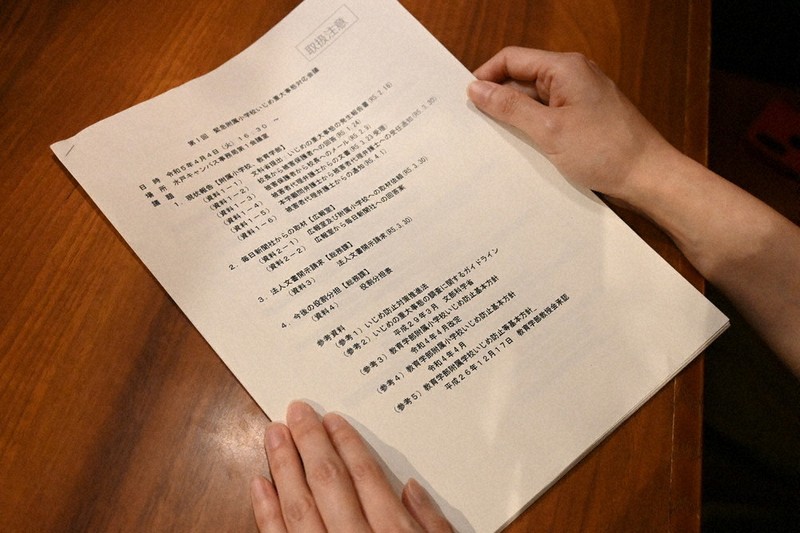 取扱注意
第1回　緊急附属小学校いじめ重大事態対応会議
日　時　令和5年4月4日(火)16:30～
場　所　水戸キャンパス事務局第1会議室
議　題
1．現状報告【附属小学校、教育学部】
（資料1－1）　文科省提出：いじめの重大事態の発生報告書(R5.2.16)
（資料1－2）　校長から被害保護者への回答(R5.1.24)
（資料1－3）　被害保護者から校長へのメール(R5.2.3)
（資料1－4）　被害者代理弁護士からの文書(R5.3.23受理)
（資料1－5）　本学顧問弁護士から被害者代理弁護士への受任通知(R5.3.30)
（資料1－6）　被害者代理弁護士からの通知(R5.4.1)
2．毎日新聞社からの取材【広報室】
（資料2－1）　広報室及び附属小学校への取材依頼(R5.3.30)
（資料2－2）　広報室から毎日新聞社への回答案
3．法人文書開示請求【総務課】
（資料3）　法人文書開示請求(R5.3.10)
4．今後の役割分担【総務課】
（資料4）　役割分担表
参考資料
（参考1）いじめ防止対策推進法
（参考2）いじめの重大事態の調査に関するガイドライン
平成29年3月　文部科学省
（参考3）教育学部附属小学校いじめ防止基本方針
令和4年4月改定
（参考4）教育学部附属小学校いじめ防止基本方針
令和4年4月
（参考5）教育学部附属学校いじめ防止等基本方針
平成26年12月17日　教育学部教授会承認